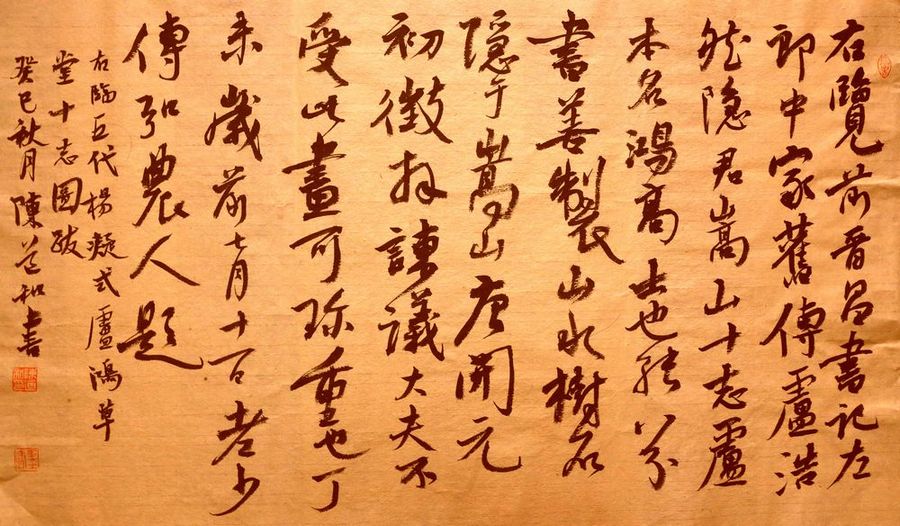 右覽前晉昌書記左
郎中家舊傳盧浩
然隱君嵩山十志盧
本名鴻高士也能八分
書善製山水樹石
隱于嵩山唐開元
初徵拜諫議大夫不
受此畫可珍重也丁
未歲前七月十八日老少
傳弘農人題
右臨五代楊凝式盧鴻草
堂十志圖跋
癸巳秋月陳和書